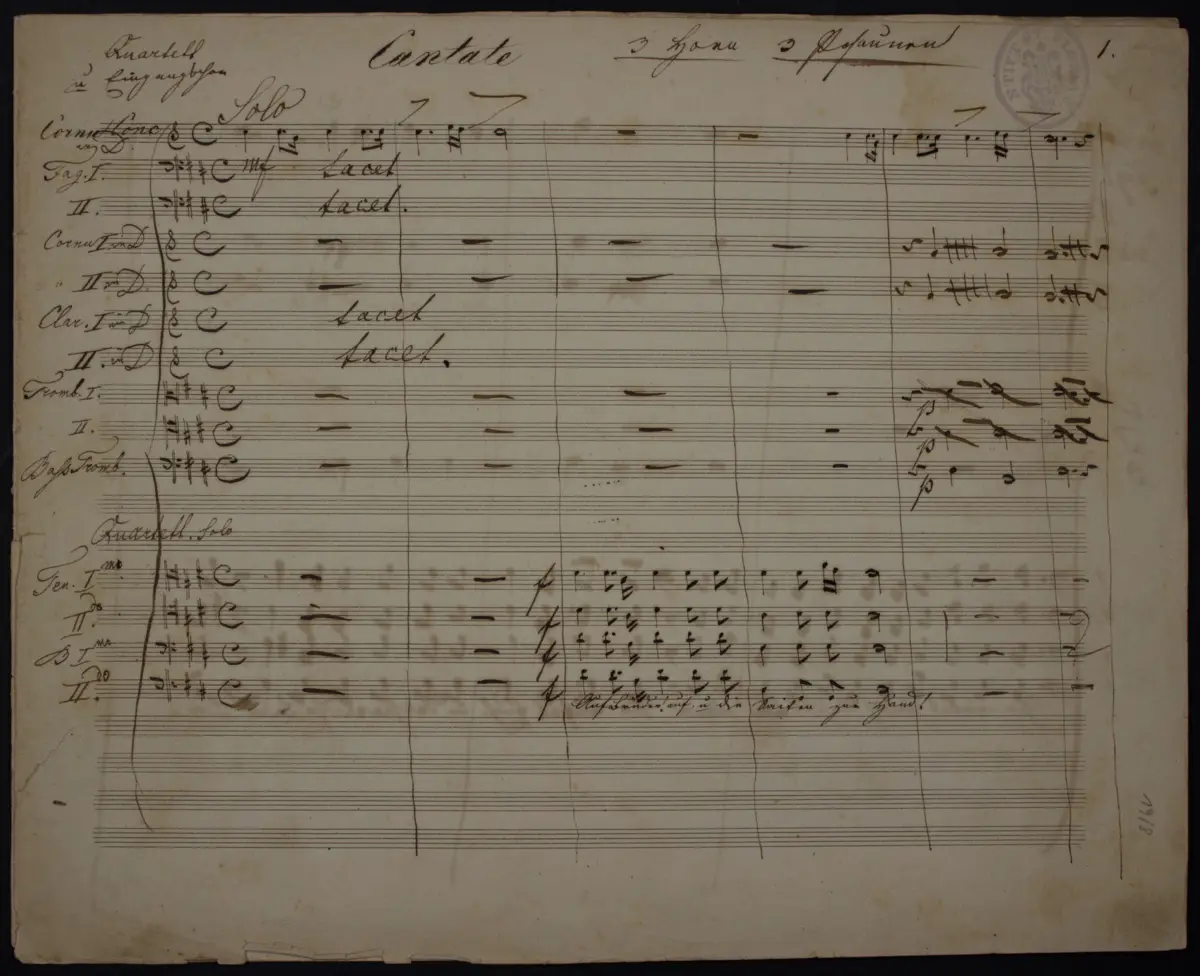 Quartett
u Eingangschor
Cantate
3 Horn 3 Posaunen
1.
Solo
Cornu Conc
in D.
mf
Fag. I. tacet
II. tacet.
Cornu I in D
" II in D.
Clar. I in D tacet
II. in D tacet.
Tromb. I. p
II. p
Baß Tromb. p
Quartett. Solo
Ten. I mo f
II do f
B I mo f
II do f
Auf Brüder, auf u die Saiten zur Hand!